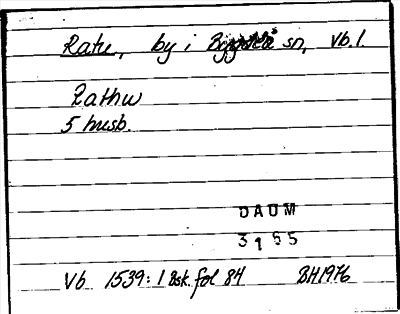 Ratu, by i Bygdeå sn, Vb. l.
Rathw
5 husb.
DAUM
3155
Vb 1539: 1 Bsk. fol 84 BH 1976